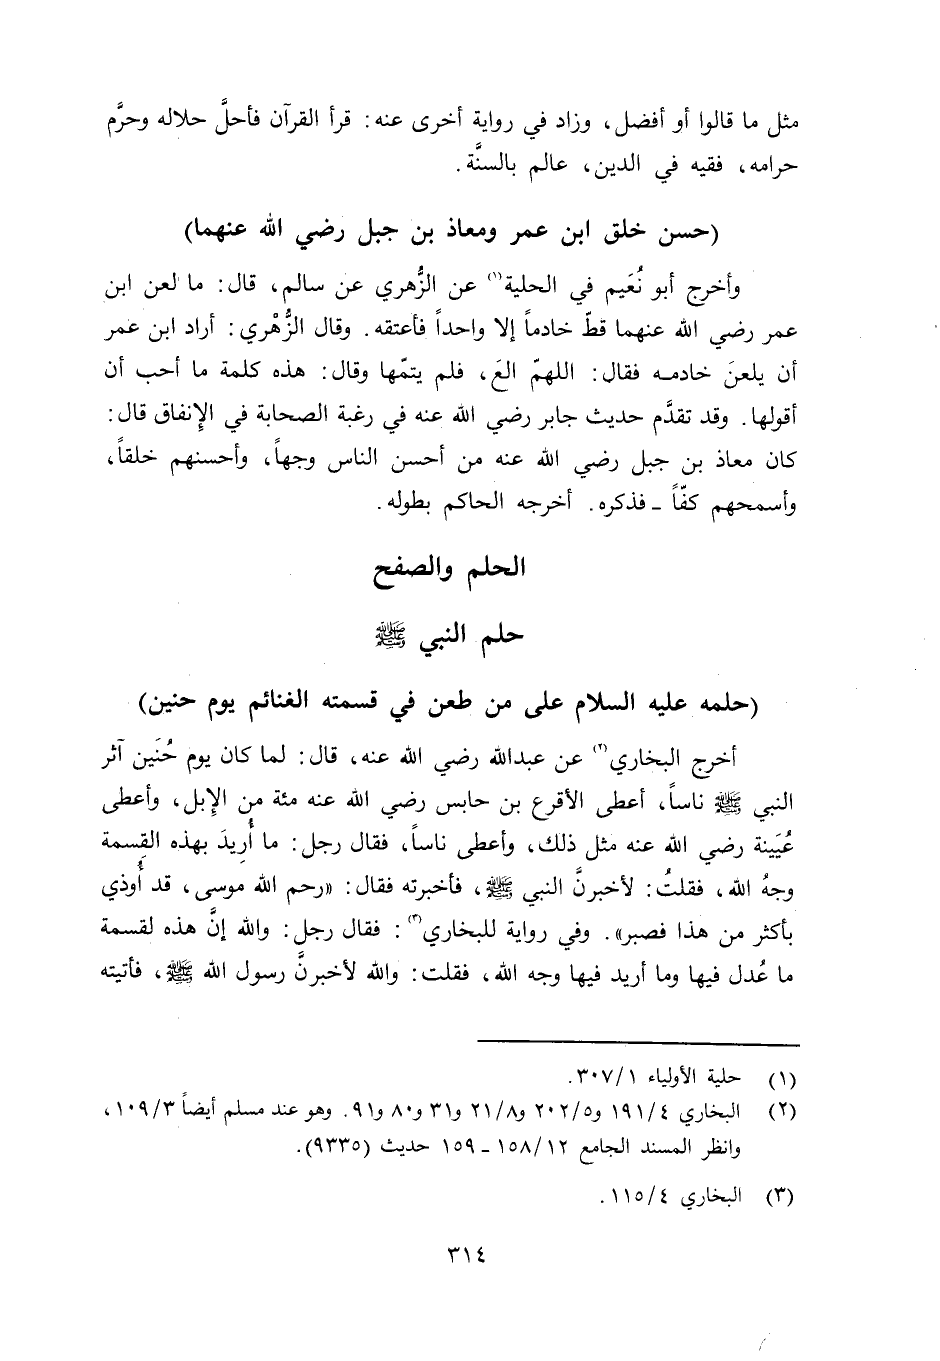 مثل ما قالوا أو أفضل، وزاد في رواية أخرى عنه: قرأ القرآن فأحلَّ حلاله وحرَّم
حرامه، فقيه في الدين، عالم بالسنَّة.
(حسن خلق ابن عمر ومعاذ بن جبل رضي الله عنهما)
وأخرج أبو نُعَيم في الحلية(١) عن الزُّهري عن سالم، قال: ما لعن ابن
عمر رضي الله عنهما قطّ خادماً إلا واحداً فأعتقه. وقال الزُّهْري: أراد ابن عمر
أن يلعنَ خادمـه فقال: اللهمّ العَ، فلم يتمّها وقال: هذه كلمة ما أحب أن
أقولها. وقد تقدَّم حديث جابر رضي الله عنه في رغبة الصحابة في الإنفاق قال:
كان معاذ بن جبل رضي الله عنه من أحسن الناس وجهاً، وأحسنهم خلقاً،
وأسمحهم كفّاً ـ فذكره. أخرجه الحاكم بطوله.
الحلم والصفح
حلم النبي ﷺ
(حلمه عليه السلام على من طعن في قسمته الغنائم يوم حنين)
أخرج البخاري(٢) عن عبدالله رضي الله عنه، قال: لما كان يوم حُنَين آثر
النبي ﷺ ناساً، أعطى الأقرع بن حابس رضي الله عنه مئة من الإبل، وأعطى
عُيَينة رضي الله عنه مثل ذلك، وأعطى ناساً، فقال رجل: ما أُريدَ بهذه القِسمة
وجهُ الله، فقلتُ: لأخبرنَّ النبي ﷺ، فأخبرته فقال: «رحم الله موسى، قد أُوذي
بأكثر من هذا فصبر». وفي رواية للبخاري(٣): فقال رجل: والله إنَّ هذه لقسمة
ما عُدل فيها وما أريد فيها وجه الله، فقلت: والله لأخبرنَّ رسول الله ﷺ، فأتيته
(١) حلية الأولياء ٣٠٧/١.
(٢) البخاري ١٩١/٤ و٢٠٢/٥ و٢١/٨ و٣١ و٨٠ و٩١. وهو عند مسلم أيضاً ١٠٩/٣،
وانظر المسند الجامع ١٥٨/١٢ ـ ١٥٩ حديث (٩٣٣٥).
(٣) البخاري ١١٥/٤.
٣١٤